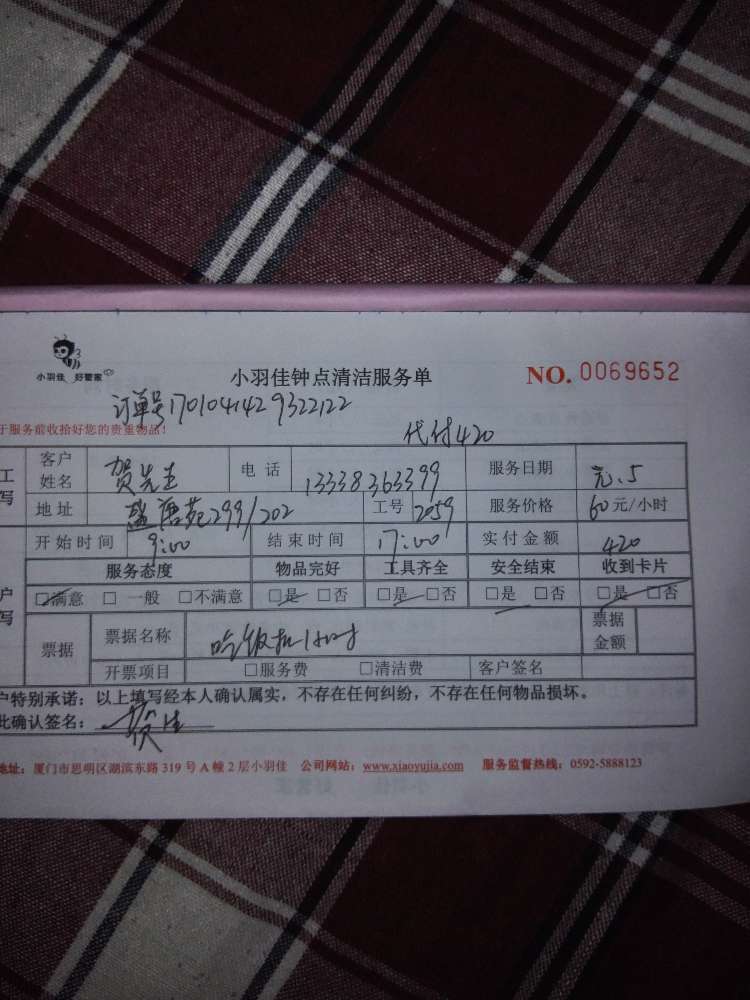 小羽佳 好管家
小羽佳钟点清洁服务单
NO. 0069652
订单号1701041429322122
于服务前收拾好您的贵重物品!
代付420
工 客户姓名 贺先生 电 话 13338363399 服务日期 元.5
写 地 址 盛唐苑299/202 工号 2059 服务价格 60元/小时
开 始 时 间 9:00 结 束 时 间 17:00 实 付 金 额 420
服务态度 物品完好 工具齐全 安全结束 收到卡片
户 □满意 □ 一般 □不满意 □是 □否 □是 □否 □是 □否 □是 □否
写 票据 票据名称 吃饭扣1小时 票据金额
开票项目 □服务费 □清洁费 客户签名
户特别承诺：以上填写经本人确认属实，不存在任何纠纷，不存在任何物品损坏。
此确认签名：
地址：厦门市思明区湖滨东路 319 号 A 幢 2 层小羽佳 公司网站：www.xiaoyujia.com 服务监督热线：0592-5888123